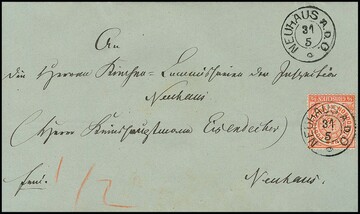 NEUHAUS A.D.O
31
5
An
die Herren Kirchen-Commissarien der Inspektion
Neuhaus
(Herrn Amtshauptmann Eisendecher)
NEUHAUS A.D.O
31
5
frei.
1/2
Neuhaus.